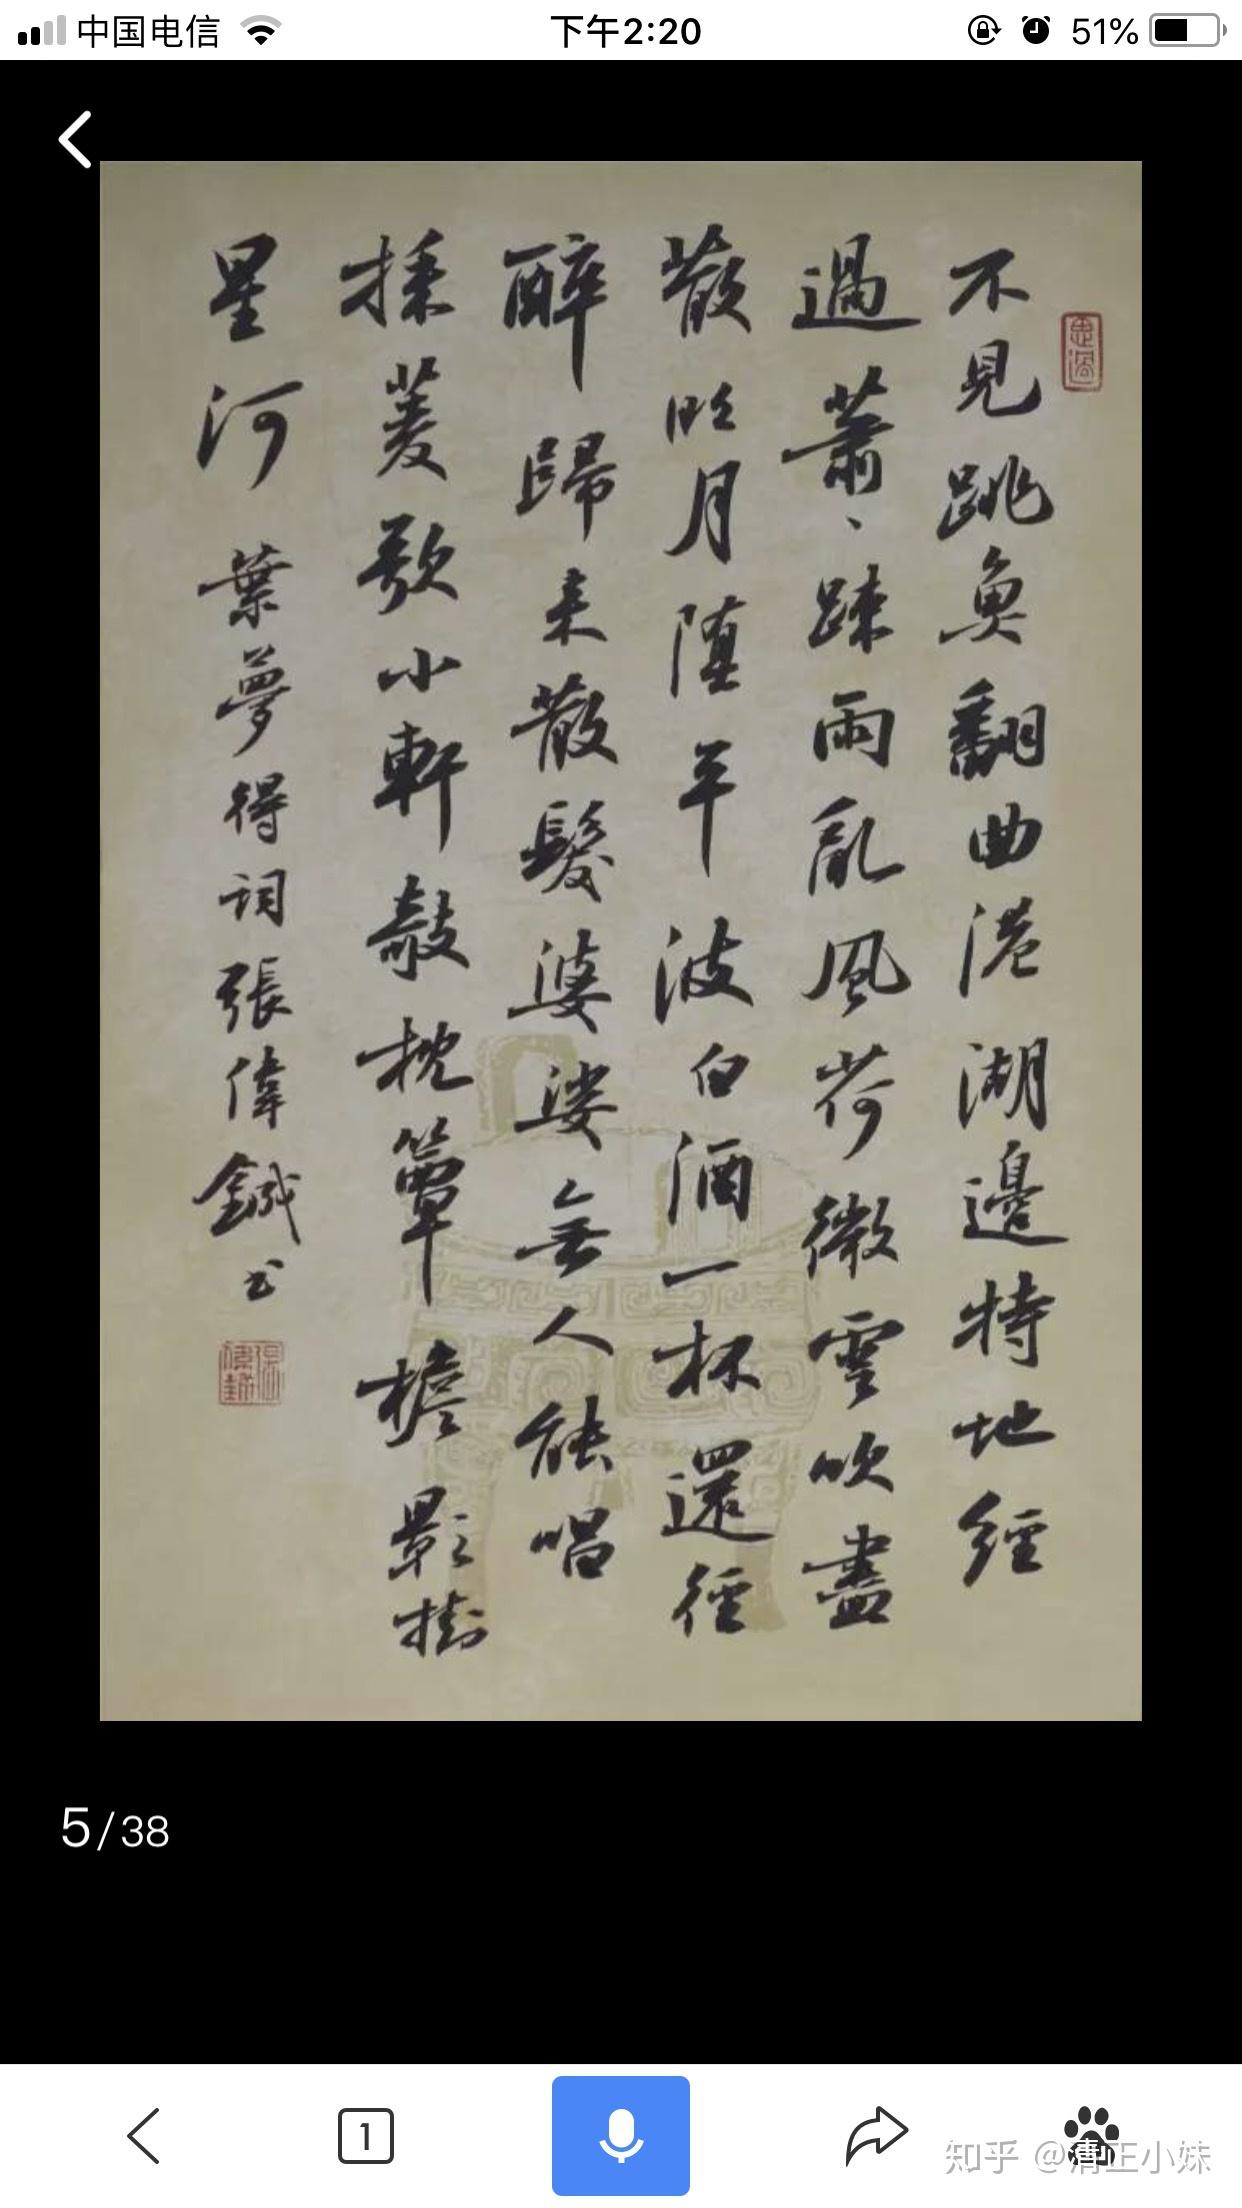 中国电信
下午2:20
51%
不見跳魚翻曲港湖邊特地經
過蕭、踈雨亂風荷微雲吹盡
散明月墮平波白酒一杯還徑
醉歸来散髮婆娑無人能唱
採菱歌小軒敧枕簟檐影掛
星河 葉夢得詞張偉鋮书
5/38
1
知乎 @清正小妹